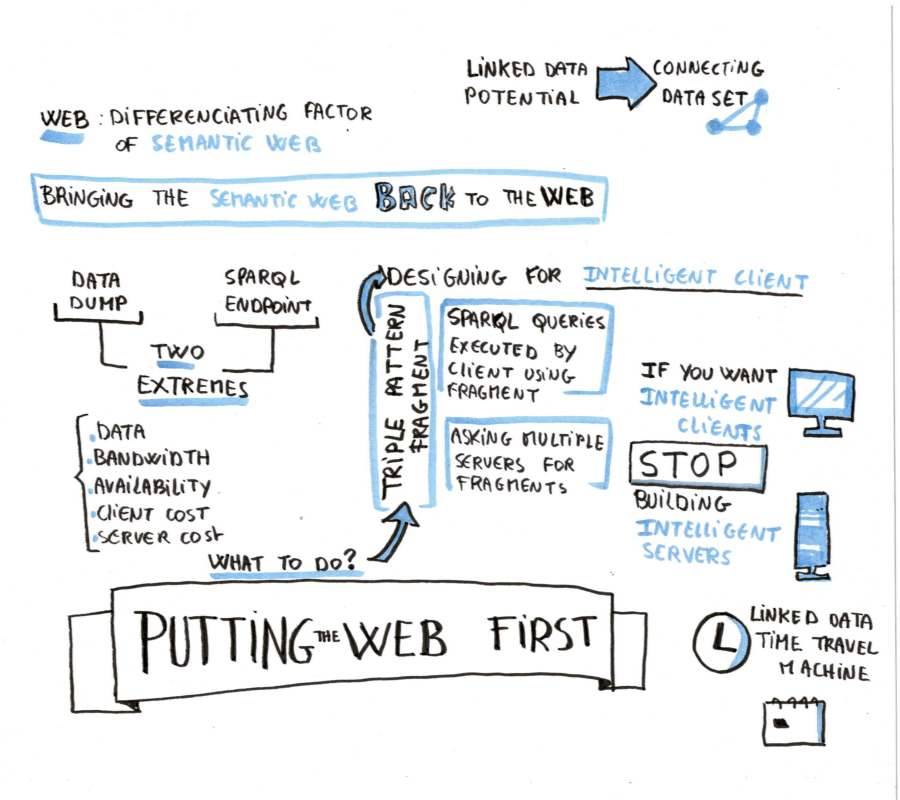 LINKED DATA
POTENTIAL
CONNECTING
DATA SET
WEB : DIFFERENCIATING FACTOR
OF SEMANTIC WEB
BRINGING THE SEMANTIC WEB BACK TO THE WEB
DATA
DUMP
SPARQL
ENDPOINT
TWO
EXTREMES
DATA
BANDWIDTH
AVAILABILITY
CLIENT COST
SERVER COST
WHAT TO DO?
TRIPLE PATTERN
FRAGMENT
DESIGNING FOR INTELLIGENT CLIENT
SPARQL QUERIES
EXECUTED BY
CLIENT USING
FRAGMENT
ASKING MULTIPLE
SERVERS FOR
FRAGMENTS
IF YOU WANT
INTELLIGENT
CLIENTS
STOP
BUILDING
INTELLIGENT
SERVERS
PUTTING THE WEB FIRST
LINKED DATA
TIME TRAVEL
MACHINE